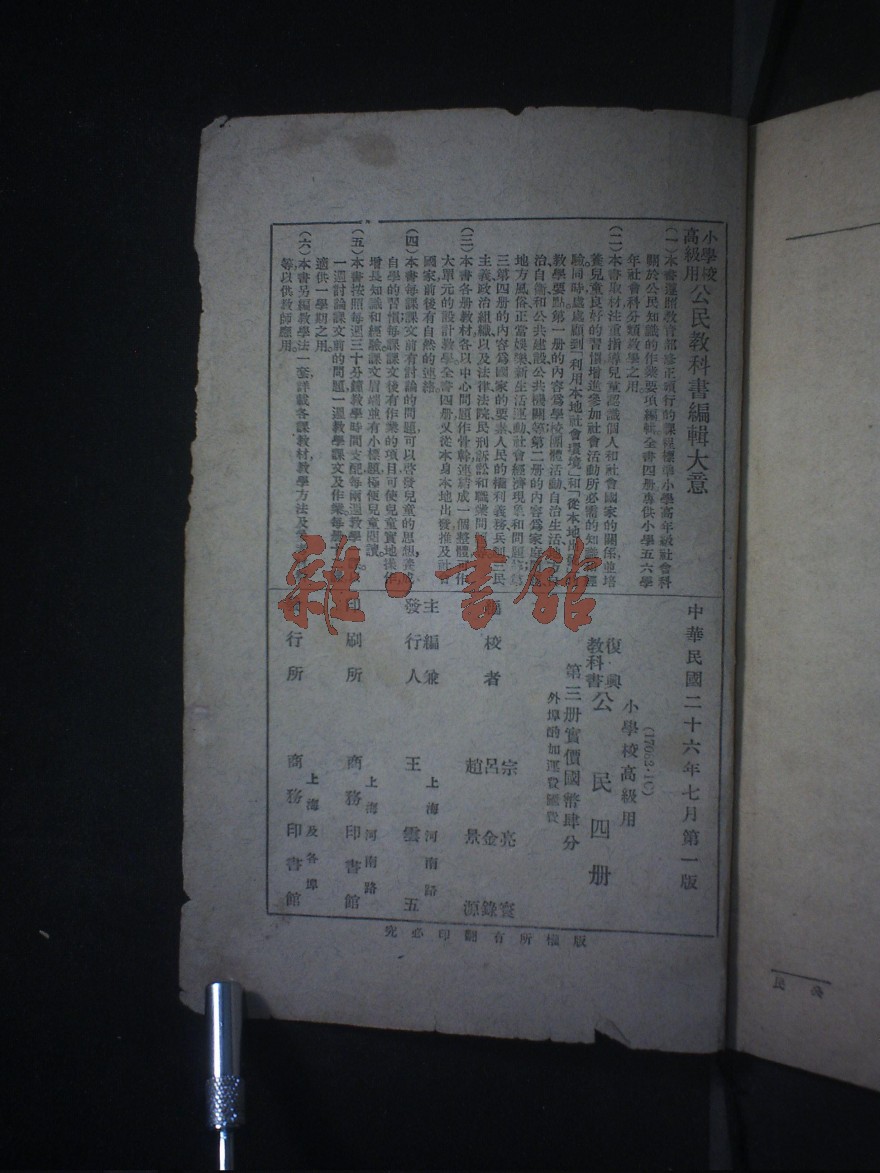 小學校高級用公民教科書編輯大意
(一)本書遵照教育部修正頒行的課程標準小學高年級社會科
關於公民知識的作業要項編輯全書四册專供小學五六學
年社會科分類教學之用。
(二)本書取材注重指導兒童認識個人和社會國家的關係並培
養兒童良好的習慣增進參加社會活動所必需的知識和經
驗同時處處顧到「利用本地社會環境」和「從本地出發」的
教學要點第一册的內容爲學校團體活動、自治生活、
治自衞和公共建設公共機關等第二册的內容爲家庭
地方風俗正當娛樂新生活運動社會經濟現象和問題等第
三第四册的內容爲國家的要素人民的權利義務兵制三民
主義政治組織以及法律法院民刑訴訟和職業問
(三)本書各册教材各以中心問題作骨幹連絡成一個整體作
大單元的設計教學全書四册又從本身本地出發推及社會
國家前後有自然的連絡。
(四)本書每課課文前有討論的問題可以啓發兒童的思想養成
自學的習慣每課課文後有作業的項目可使兒童實地操作
增長知識和經驗課文眉端並有小標題極便兒童閱讀。
(五)本書按照每週三十分鐘教學時間支配每兩週教學一
一週討論課文前的問題一週教學課文及作業每册
適供一學期之用。
(六)本書另編教學法一套詳載各課教材教學方法及參考
等以供教師應用。
中華民國二十六年七月第一版
小學校高級用
復興教科書公民四册
第三册實價國幣肆分
外埠酌加運費匯費
編校者 宗亮寰 呂金錄 趙景源
主編兼發行人 上海河南路 王雲五
印刷所 上海河南路 商務印書館
行所 上海及各埠 商務印書館
版權所有翻印必究
雜·書館
公民